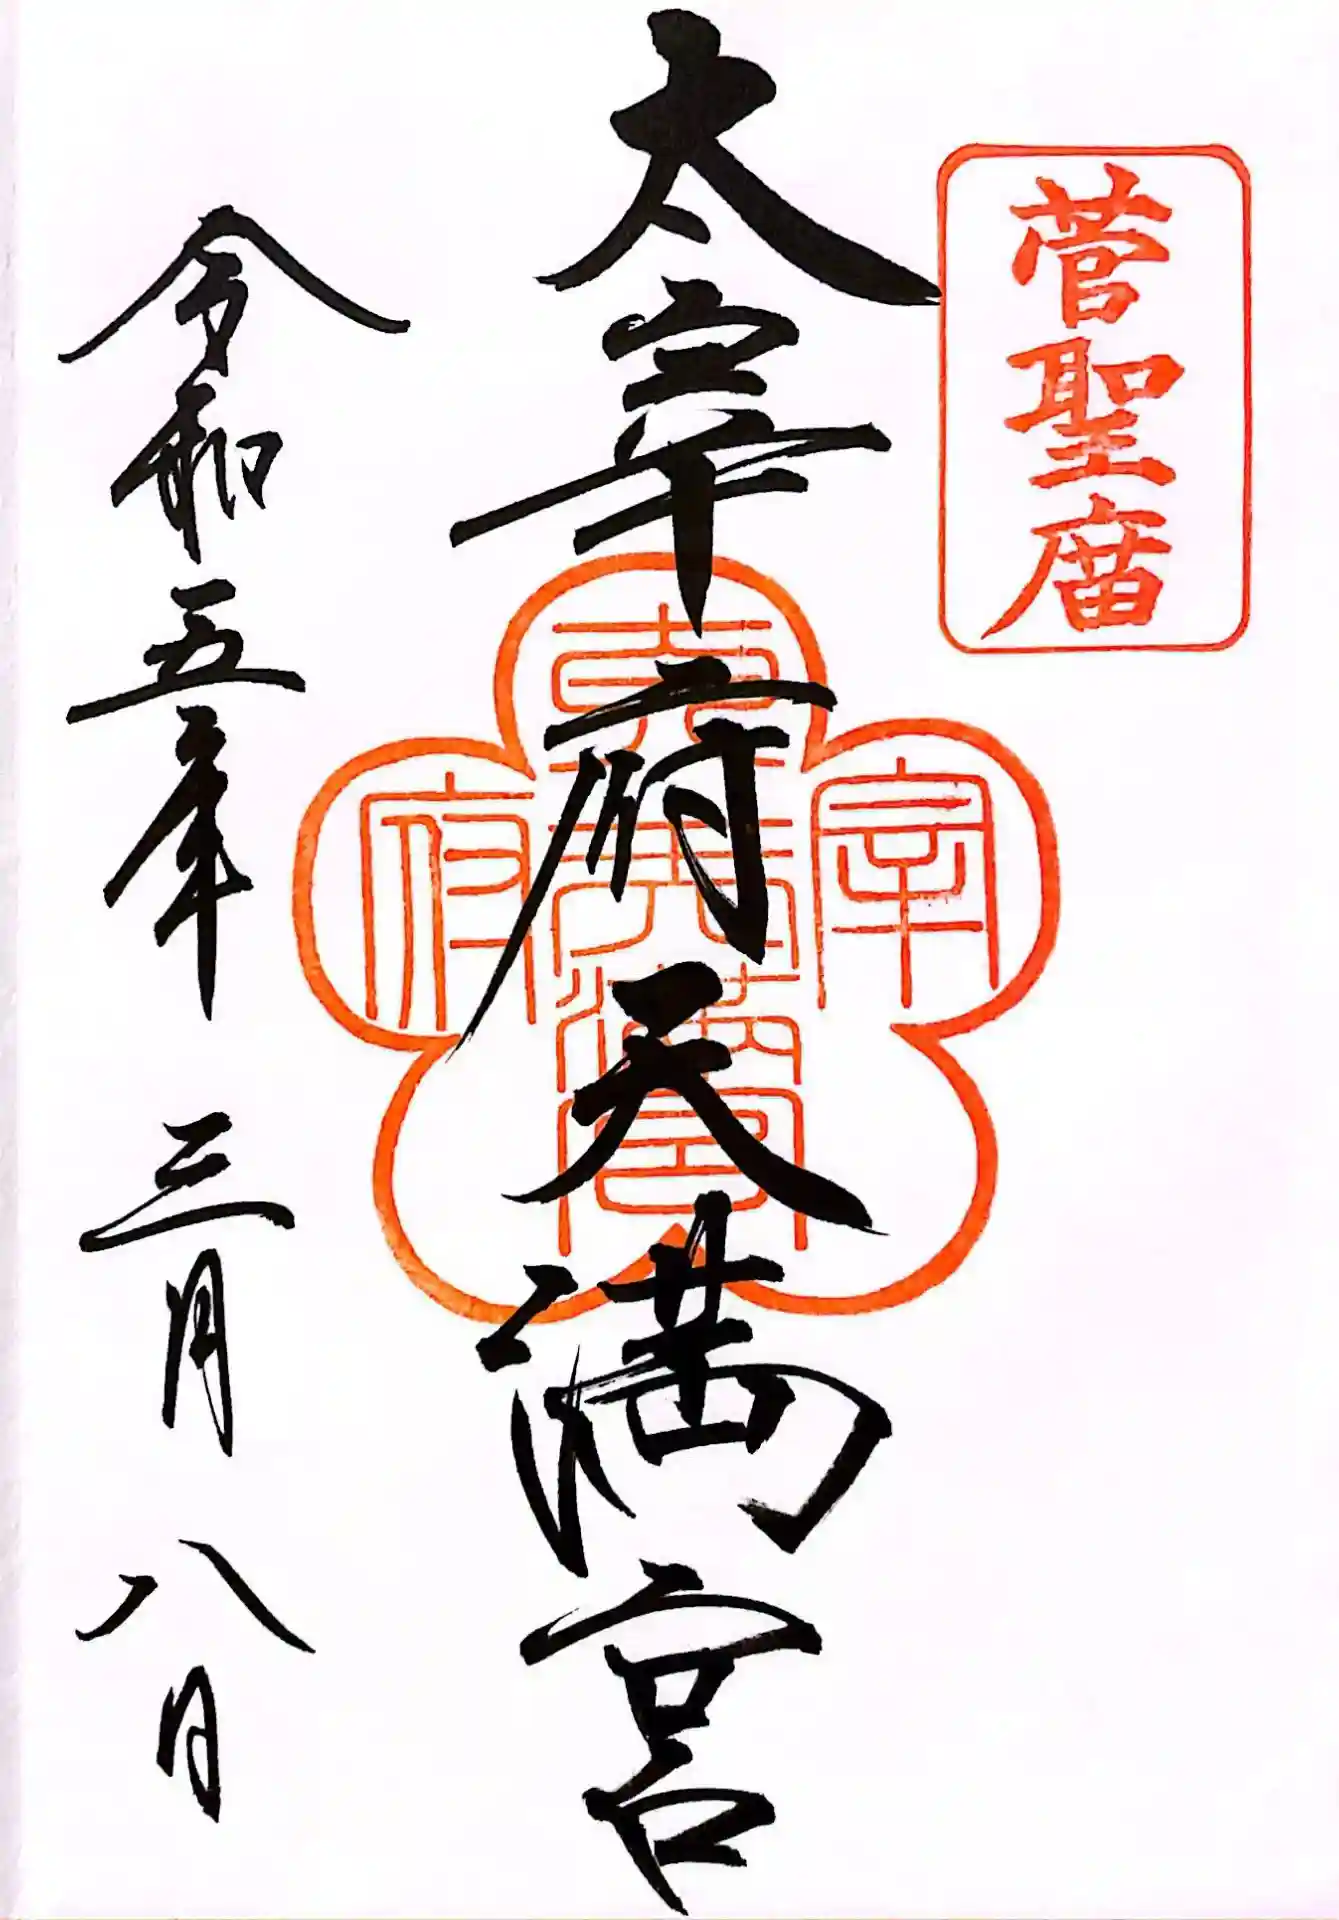 菅聖庿
太宰府天満宮
宰
府
天満宮
令和五年 三月 八日